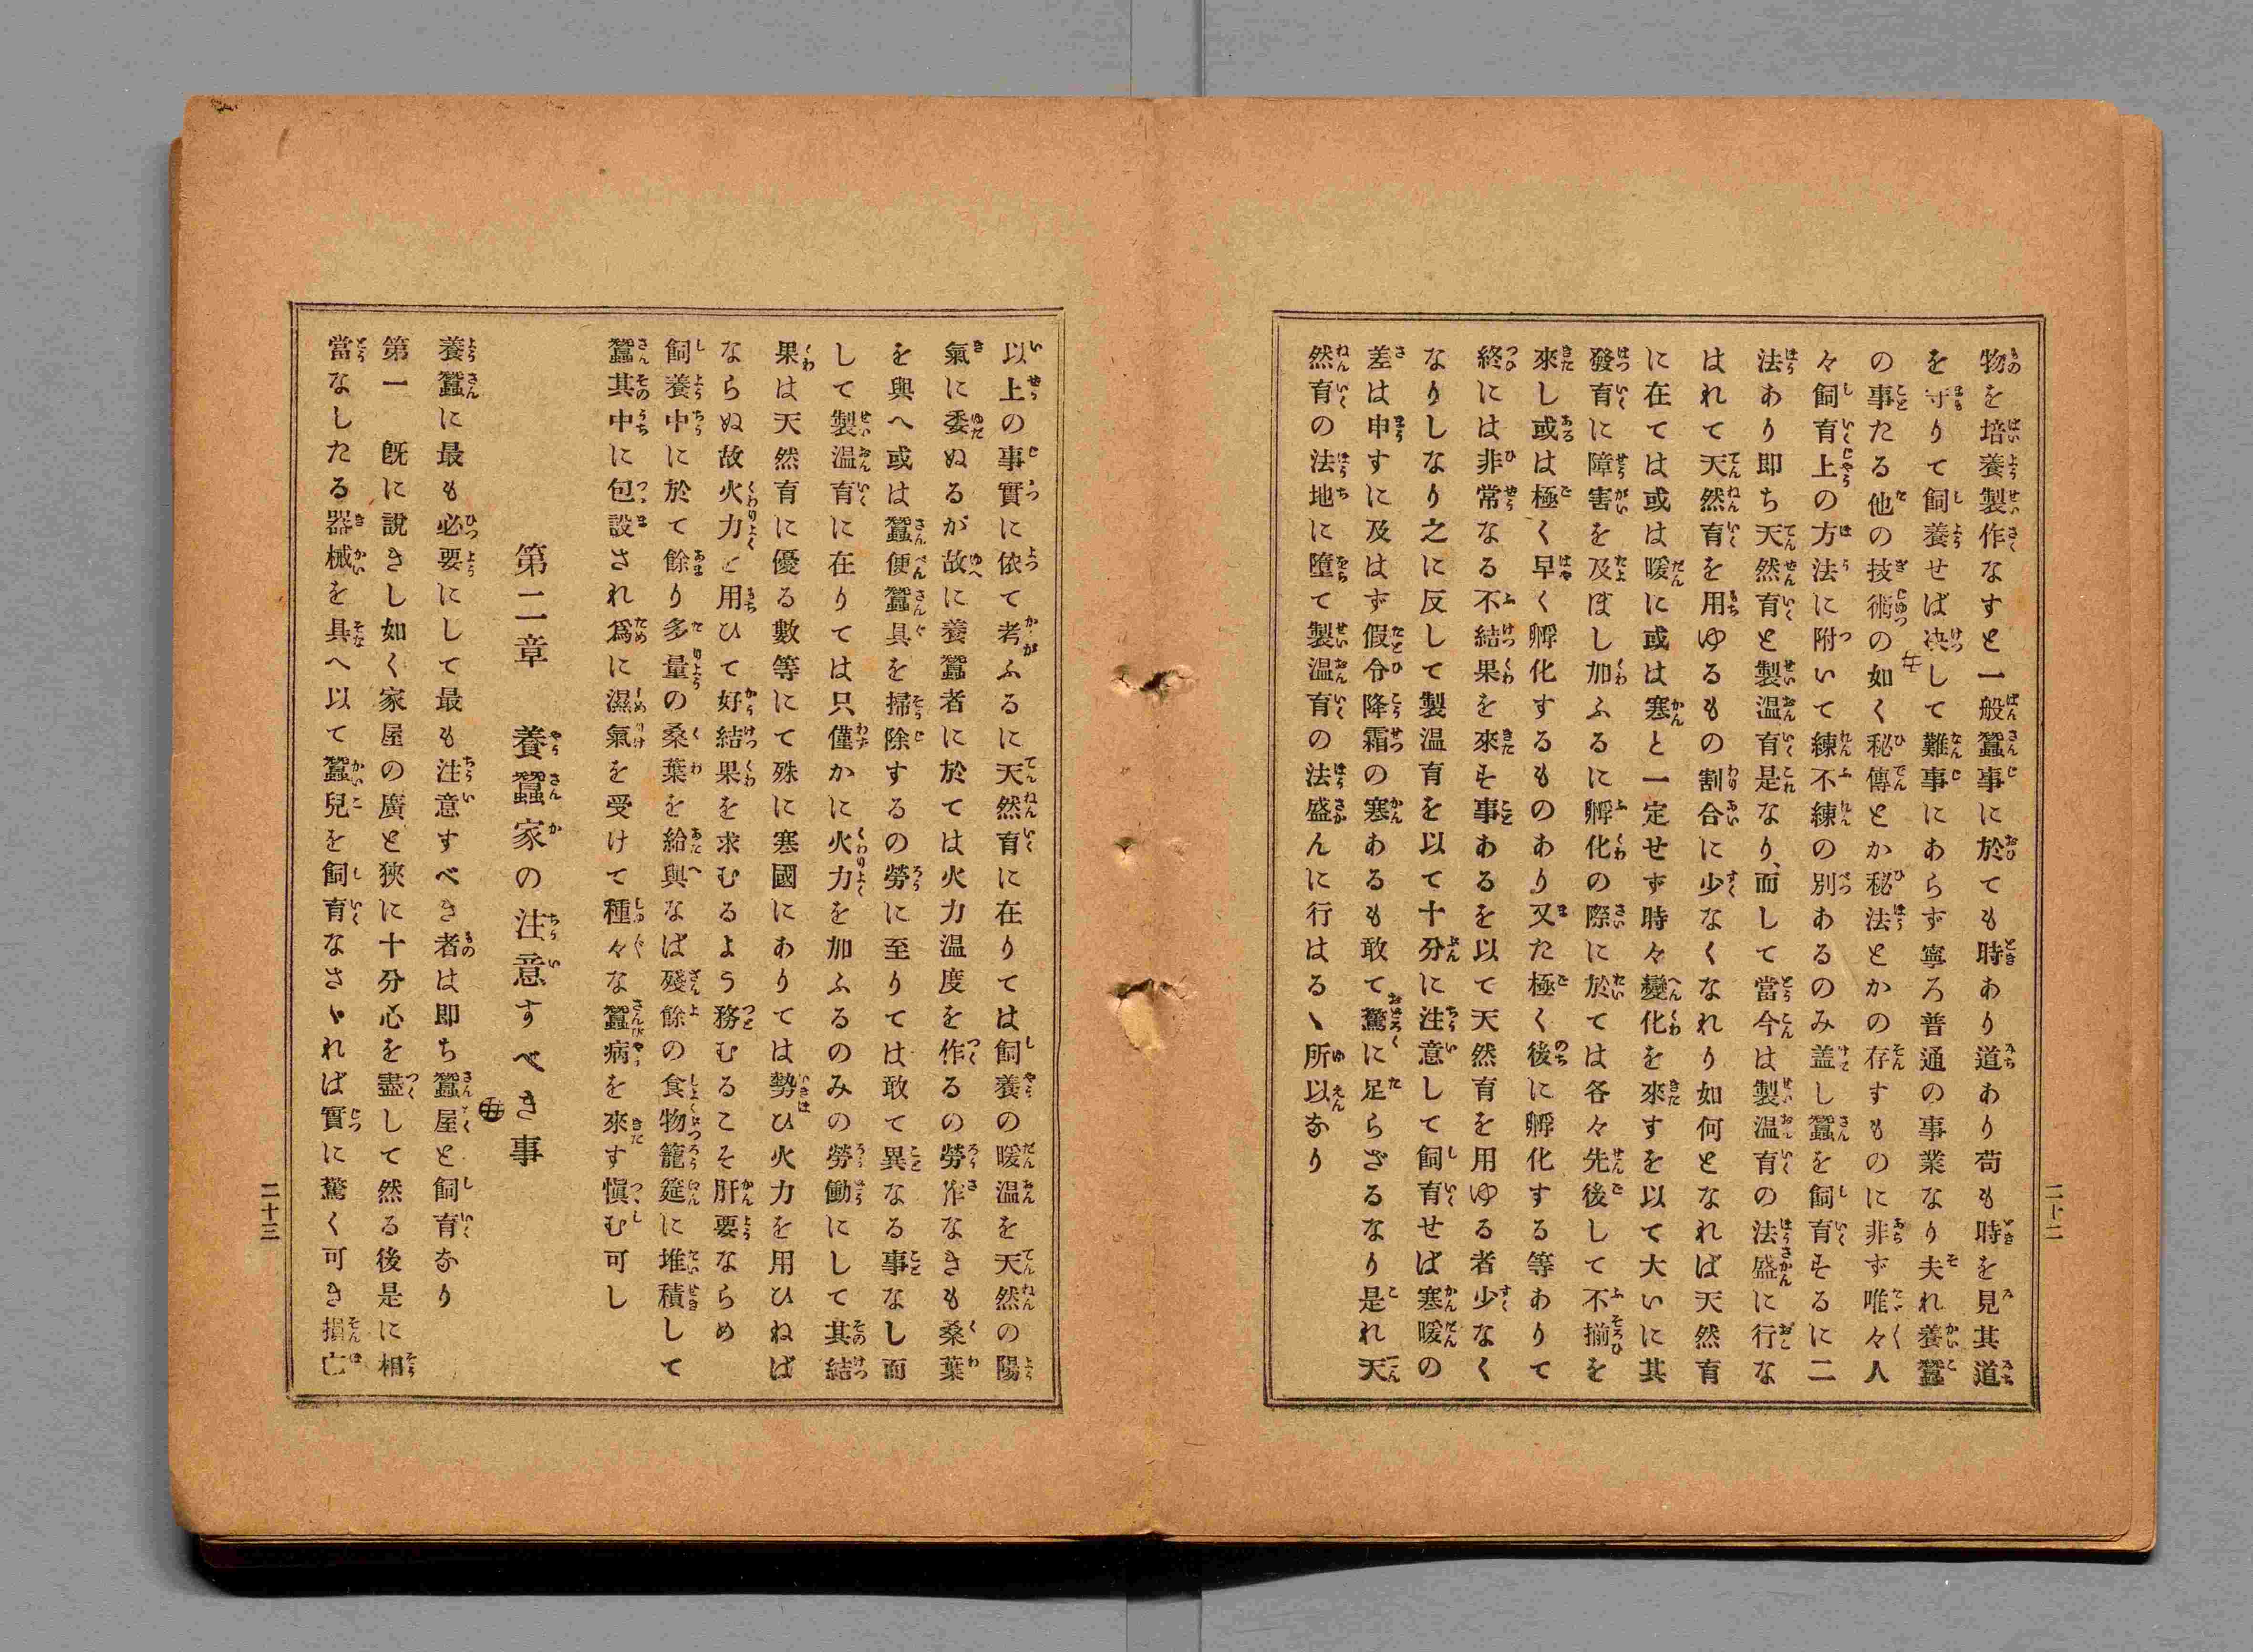 物を培養製作なすと一般蠶事に於ても時あり道あり苟も時を見其道
を守りて飼養せば决して難事にあらず寧ろ普通の事業なり夫れ養蠶
の事たる他の技術の如く秘傳とか秘法とかの存すものに非ず唯々人
々飼育上の方法に附いて練不練の別あるのみ盖し蠶を飼育するに二
法あり即ち天然育と製温育是なり、而して當今は製温育の法盛に行な
はれて天然育を用ゆるもの割合に少なくなれり如何となれば天然育
に在ては或は暖に或は寒と一定せず時々變化を來すを以て大いに其
發育に障害を及ぼし加ふるに孵化の際に於ては各々先後して不揃を
來し或は極く早く孵化するものあり又た極く後に孵化する等ありて
終には非常なる不結果を來す事あるを以て天然育を用ゆる者少なく
なりしなり之に反して製温育を以て十分に注意して飼育せば寒暖の
差は申すに及はず假令降霜の寒あるも敢て驚に足らざるなり是れ天
然育の法地に墮て製温育の法盛んに行はるヽ所以なり
二十二
以上の事實に依て考ふるに天然育に在りては飼養の暖温を天然の陽
氣に委ぬるが故に養蠶者に於ては火力温度を作るの勞作なきも桑葉
を與へ或は蠶便蠶具を掃除するの勞に至りては敢て異なる事なし而
して製温育に在りては只僅かに火力を加ふるのみの勞働にして其結
果は天然育に優る數等にて殊に寒國にありては勢ひ火力を用ひねば
ならぬ故火力と用ひて好結果を求むるよう務むるこそ肝要ならめ
飼養中に於て餘り多量の桑葉を給與なば殘餘の食物籠筵に堆積して
蠶其中に包設され爲に濕氣を受けて種々な蠶病を來す愼む可し
第二章 養蠶家の注意すべき事
養蠶に最も必要にして最も注意すべき者は即ち蠶屋と飼育なり
第一 既に說きし如く家屋の廣と狹に十分心を盡して然る後是に相
當なしたる器械を具へ以て蠶兒を飼育なさヽれば實に驚く可き損亡
二十三